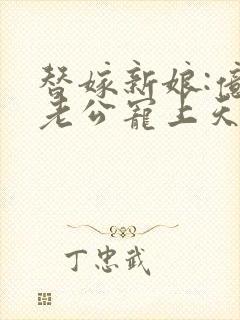 替嫁新娘:億
老公寵上天
丁忠武